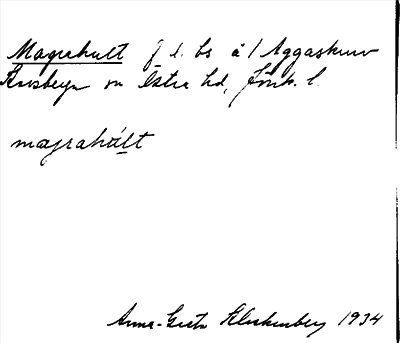 Magrahult f. d. bs å / Aggaskuru
Karsberga sn Östra hd, Jönk. l.
magrahúlt
Anna-Greta Klockenberg 1934